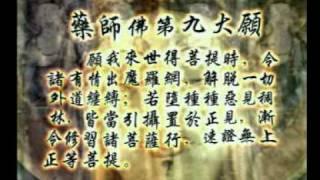 藥師佛第九大願
願我來世得菩提時，令
諸有情出魔羅網，解脫一切
外道纏縛；若墮種種惡見稠
林，皆當引攝置於正見，漸
令修習諸菩薩行，速證無上
正等菩提。